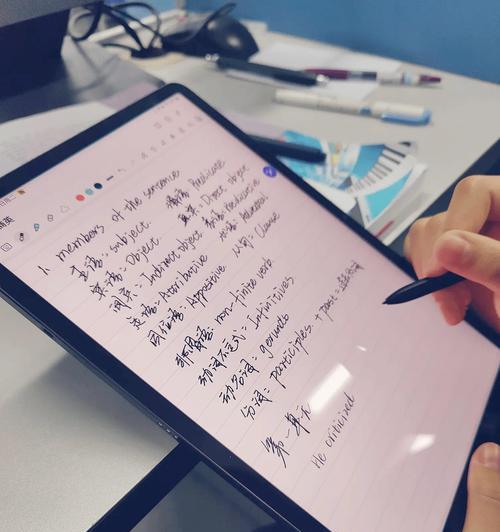 1. members of the sentence
主语: subject. 谓语: Predicate
宾语: object. 直宾: Direct object
间宾: Indirect object 表语: Predicative
定语: Attributive 状语: Adverbial
同位语: Appositive 从句: Clause
非谓语: non-finite verb.
动词不定式= Infinitives
动名词= gerunds
分词: participles. + past =
第一单元
He criticized